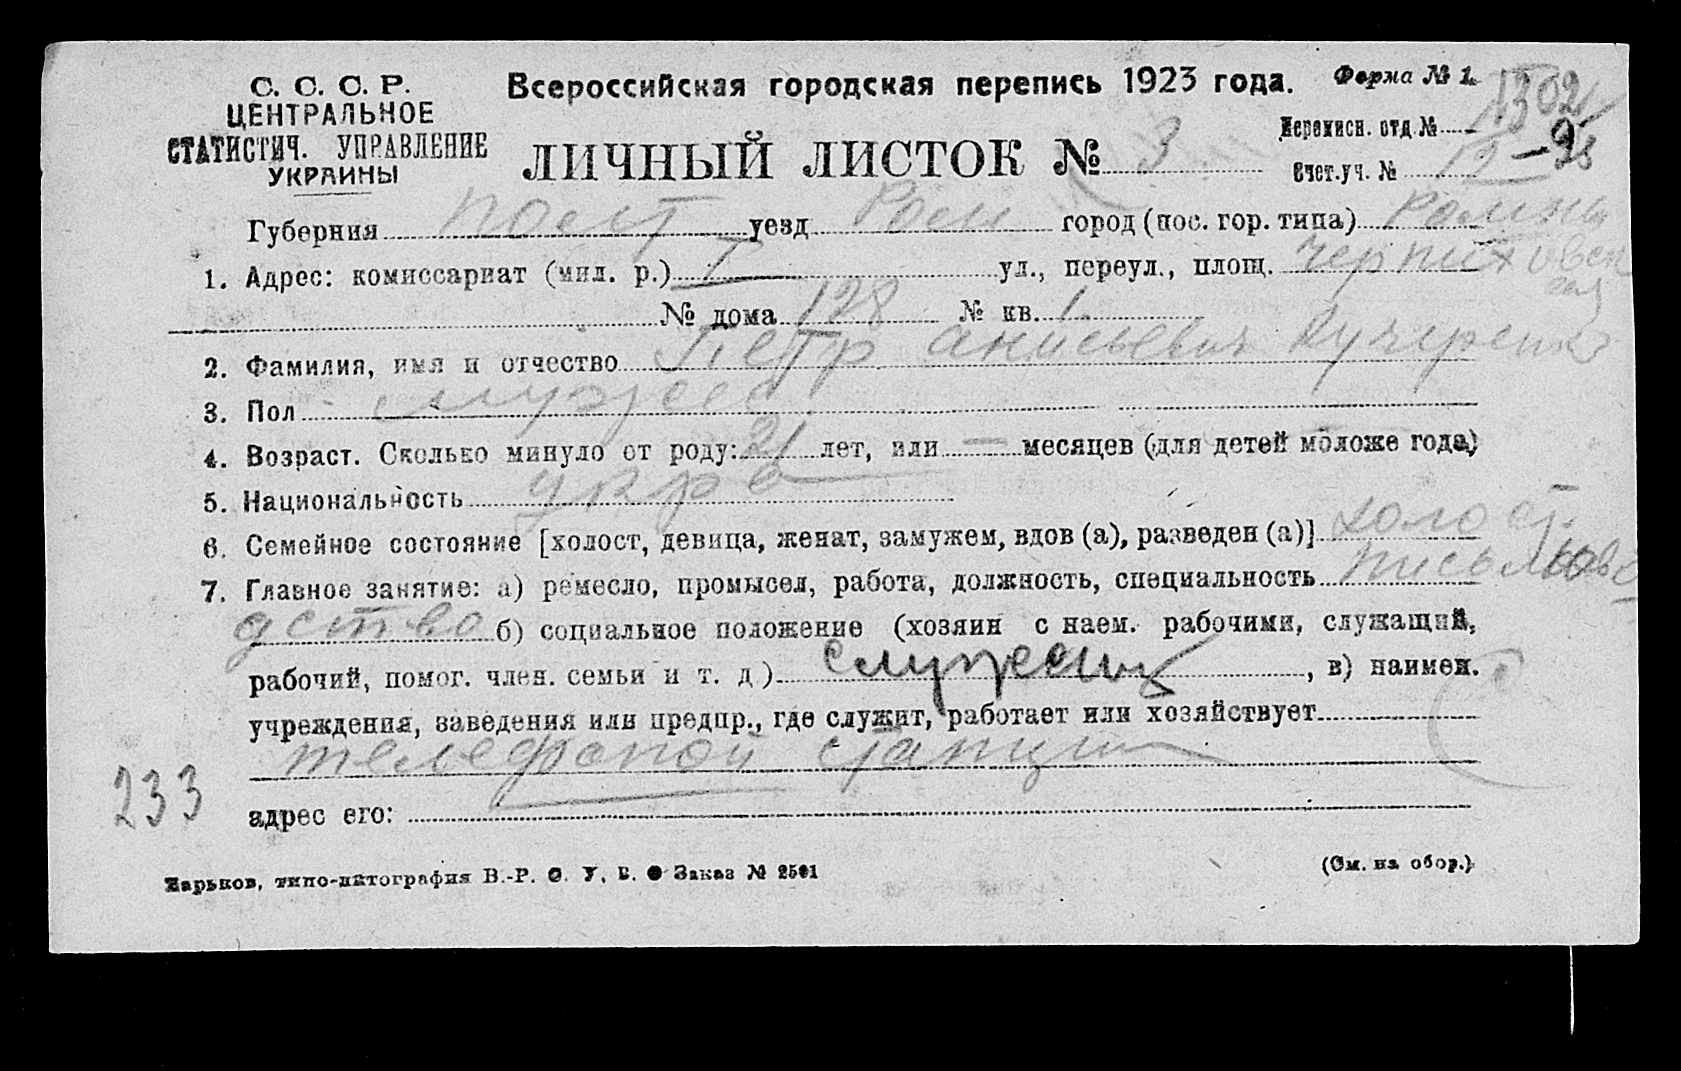 С. С. С. Р.
ЦЕНТРАЛЬНОЕ
СТАТИСТИЧ. УПРАВЛЕНИЕ
УКРАИНЫ
Всероссийская городская перепись 1923 года. Форма № 1.
1302
ЛИЧНЫЙ ЛИСТОК № 3
Переписн. отд. №
Счет.уч. № 12 —
Губерния Полт уезд Ром город (пос. гор. типа) Ромны
1. Адрес: комиссариат (мил. р.) I ул., переул., площ. Черниховск
ая
№ дома 128 № кв. 1.
2. Фамилия, имя и отчество Петр Анисьевич Кучеренко
3. Пол мужес
4. Возраст. Сколько минуло от роду: 21 лет, или — месяцев (для детей моложе года)
5. Национальность укра
6. Семейное состояние [холост, девица, женат, замужем, вдов (а), разведен (а)] холост.
7. Главное занятие: а) ремесло, промысел, работа, должность, специальность письмово
дство б) социальное положение (хозяин с наем. рабочими, служащий,
рабочий, помог. член. семьи и т. д) служащ, в) наимен.
учреждения, заведения или предпр., где служит, работает или хозяйствует
телефоной станции
233
адрес его:
Харьков, типо-литография В.-Р. О. У. В. Заказ № 2501
(См. на обор.)